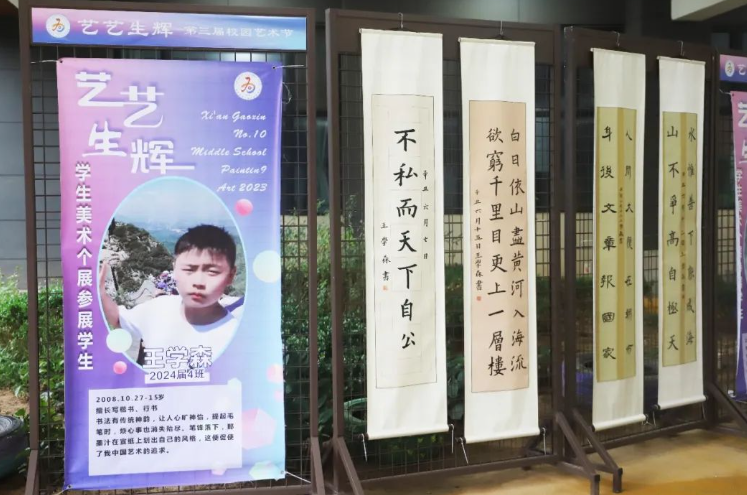 艺艺生辉 - 第三届校园艺术节
艺艺生辉
Xi'an Gaoxin
No.10
Middle School
PaintinG
Art 2023
学生美术个展参展学生
王学森
2024届4班
2008.10.27-15岁
擅长写楷书、行书
书法有传统神韵，让人心旷神怡，提起毛
笔时，烦心事也消失殆尽、笔锋落下，那
墨汁在宣纸上划出自己的风格，这便促使
了我中国艺术的追求。
不私而天下自公
辛丑六月七日
王学森書
白日依山盡黄河入海流
欲窮千里目更上一層樓
辛丑六月十五日王学森書
身後文章報國家
水惟善下能成海
山不爭高自極天
艺艺生辉